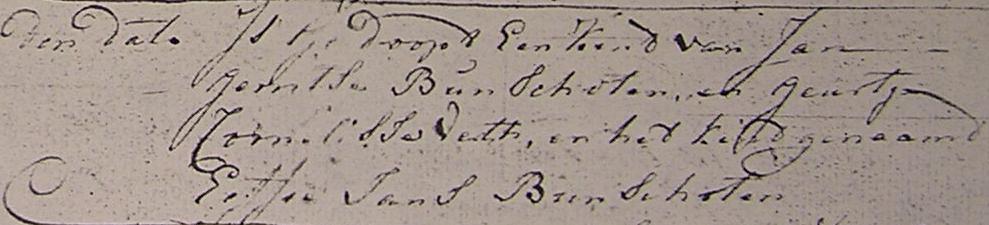 den dato Is gedoopt Een kind van Jan
Gerritse Bunschoten, en Geertje
Cornelisse Veth, en het kind genaamd
Eefje Jans Bunschoten